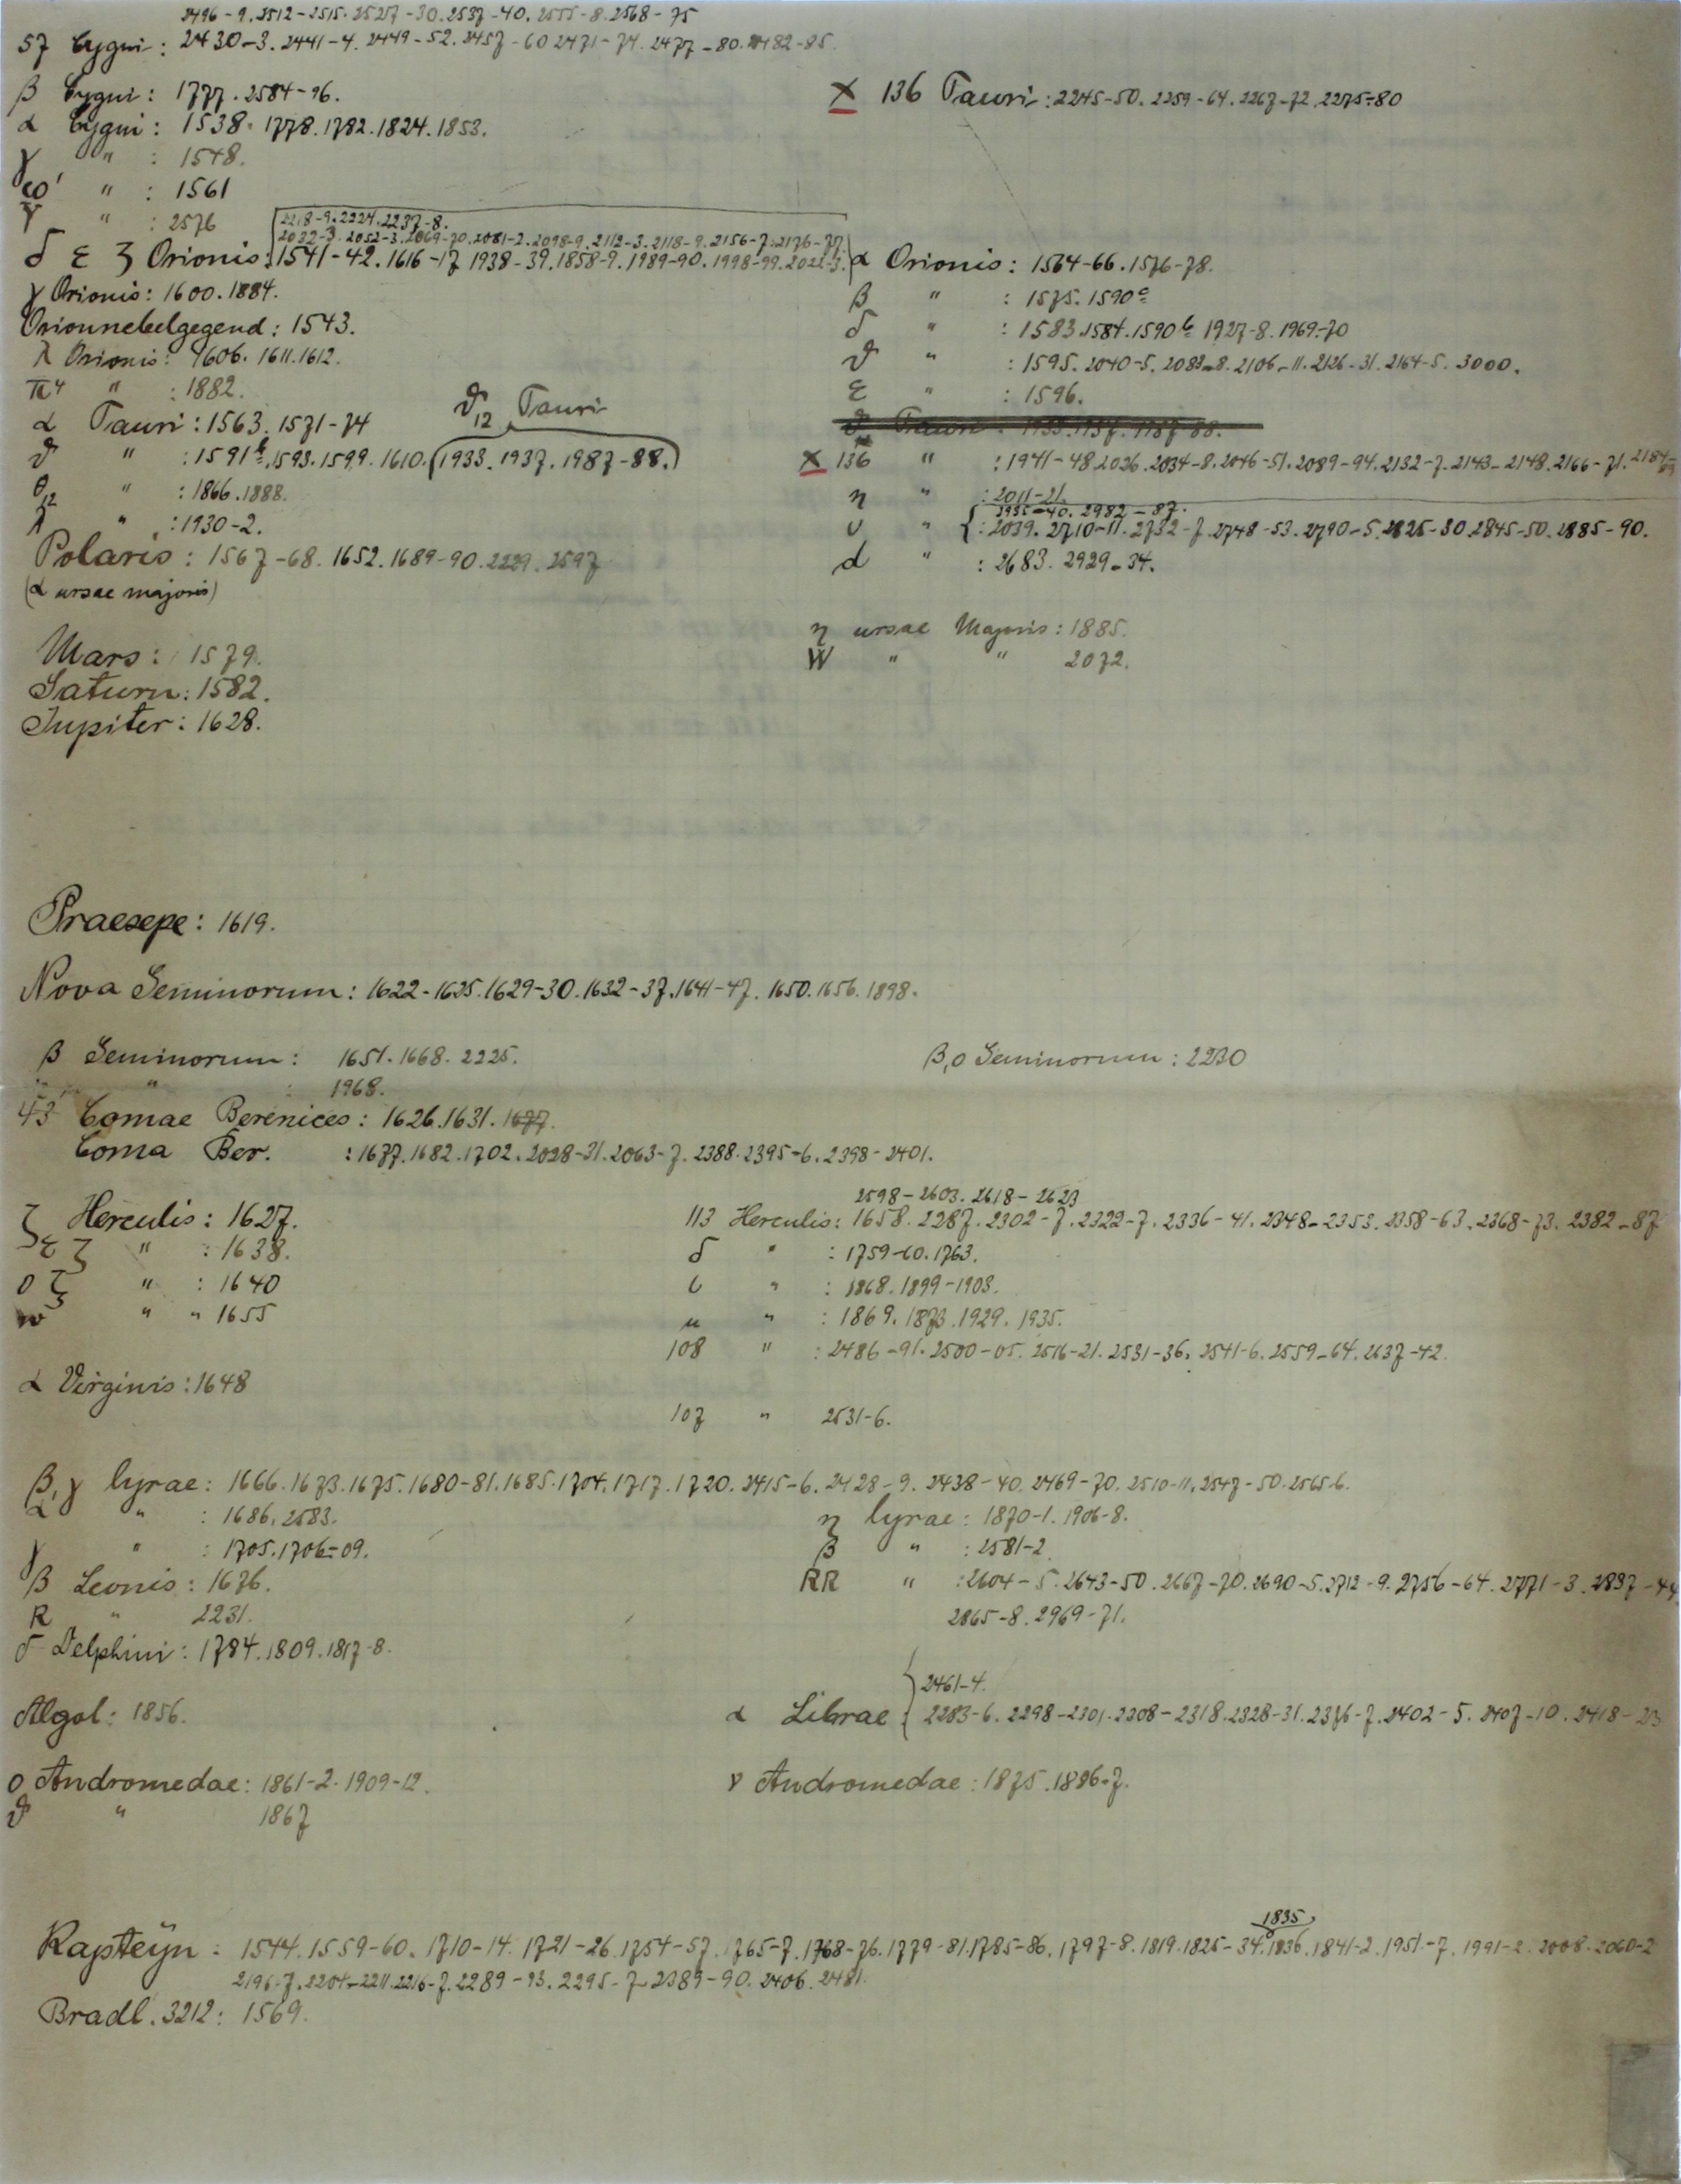 2496-9. 2512-2515. 2527-30. 2537-40. 2555-8. 2568-75
57 Cygni: 2430-3. 2441-4. 2449-52. 2457-60 2471-74. 2477-80. 2482-85.
β Cygni: 1777. 2584-96.
X 136 Tauri: 2245-50. 2259-64. 2267-72. 2275-80
α Cygni: 1538. 1778. 1782. 1824. 1853.
γ " : 1548.
ω' " : 1561
γ " : 2576
2218-9. 2224. 2237-8.
2032-3. 2052-3. 2069-70. 2081-2. 2098-9. 2112-3. 2118-9. 2156-7. 2176-77.
δ ε ζ Orionis: 1541-42. 1616-17 1938-39. 1858-9. 1989-90. 1998-99. 2022-3.
α Orionis: 1564-66. 1576-78.
γ Orionis: 1600. 1884.
β " : 1575. 1590c
Orionnebelgegend: 1543.
δ " : 1583. 1584. 1590b 1927-8. 1969-70
λ Orionis: 1606. 1611. 1612.
ϑ " : 1595. 2040-5. 2083-8. 2106-11. 2126-31. 2164-5. 3000.
π4 " : 1882.
ε " : 1596.
ϑ12 Tauri
α Tauri: 1563. 1571-74
ϑ " : 1591b. 1593. 1599. 1610. (1933. 1937. 1987-88.)
X 136 " : 1941-48. 2026. 2034-8. 2046-51. 2089-94. 2132-7. 2143-2148. 2166-71. 2184-89
θ12 " : 1866. 1888.
η " : 2011-21.
λ " : 1930-2.
2935-40. 2982-87.
υ " : 2039. 2710-11. 2732-7. 2748-53. 2790-5. 2825-30. 2845-50. 2885-90.
Polaris: 1567-68. 1652. 1689-90. 2229. 2597
d " : 2683. 2929-34.
(α ursae majoris)
η ursae Majoris: 1885.
W " " 2072.
Mars: 1579.
Saturn: 1582.
Jupiter: 1628.
Praesepe: 1619.
Nova Geminorum: 1622-1625. 1629-30. 1632-37. 1641-47. 1650. 1656. 1898.
β Geminorum: 1651. 1668. 2225.
β,o Geminorum: 2230
" : 1968.
43 Comae Berenices: 1626. 1631. 1677.
Coma Ber. : 1677. 1682. 1702. 2028-31. 2063-7. 2388. 2395-6. 2398-2401.
2598-2603. 2618-2623
ζ Herculis: 1627.
113 Herculis: 1658. 2287. 2302-7. 2322-7. 2336-41. 2348-2353. 2358-63. 2368-73. 2382-87
ε ζ " : 1638.
δ " : 1759-60. 1763.
o ζ " : 1640
ι " : 1868. 1899-1903.
w " " 1655
μ " : 1869. 1873. 1929. 1935.
108 " : 2486-91. 2500-05. 2516-21. 2531-36. 2541-6. 2559-64. 2637-42.
α Virginis: 1648
107 " 2531-6.
β,γ lyrae: 1666. 1673. 1675. 1680-81. 1685. 1704. 1717. 1720. 2415-6. 2428-9. 2438-40. 2469-70. 2510-11. 2547-50. 2565-6.
α " : 1686. 2583.
η lyrae: 1870-1. 1906-8.
γ " : 1705. 1706-09.
β " : 2581-2
β Leonis: 1676.
RR " : 2604-5. 2643-50. 2667-70. 2690-5. 2712-9. 2756-64. 2771-3. 2837-44
R " 2231.
2865-8. 2969-71.
δ Delphini: 1784. 1809. 1817-8.
2461-4.
Algol: 1856.
α Librae: 2283-6. 2298-2301. 2308-2318. 2328-31. 2376-7. 2402-5. 2407-10. 2418-23
o Andromedae: 1861-2. 1909-12.
γ Andromedae: 1875. 1896-7.
ϑ " 1867
1835
Kapteyn: 1544. 1559-60. 1710-14. 1721-26. 1754-57. 1765-7. 1768-76. 1779-81. 1785-86. 1797-8. 1819. 1825-34. 1836. 1841-2. 1951-7. 1991-2. 2008. 2060-2
2196-7. 2204-2211. 2216-7. 2289-93. 2295-7. 2389-90. 2406. 2481.
Bradl. 3212: 1569.